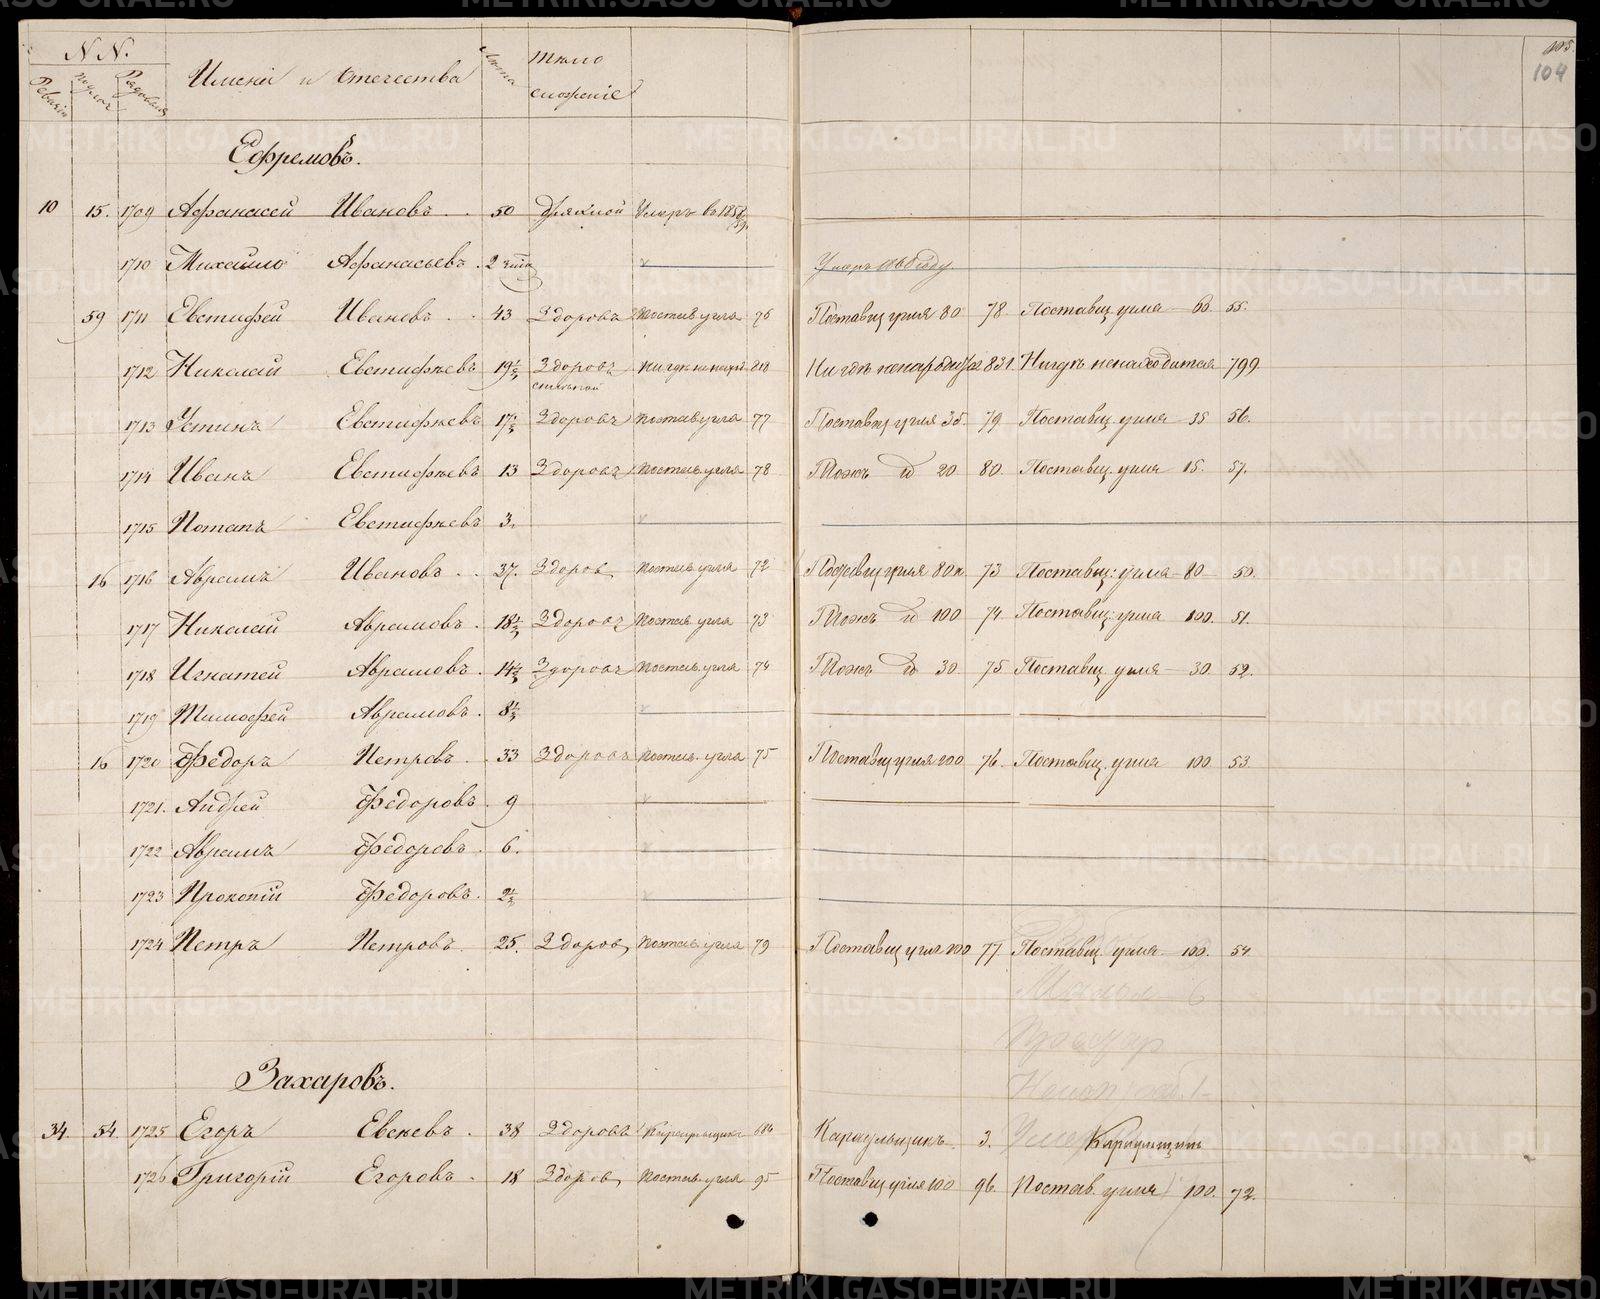 N N.
Ревизіи
Рядовыя
Имена и отечества
Лѣта
тѣло
сложеніе
105
104
Ефремовъ.
10 15. 1709 Афанасей Ивановъ . . 50 Дряхлой Умеръ въ 185
1710 Михаило Афанасьевъ . 2 Умеръ
59 1711 Евстифей Ивановъ . . 43 Здоровъ Постав угля 76 Поставщ угля 80 78. Поставщ угля 60. 55.
1712 Николай Евстифѣевъ 19½ Здоровъ 818 831. Нигдѣ ненаходится 799
1713 Устинъ Евстифѣевъ 17½ Здоровъ Постав угля 77 Поставщ угля 35. 79. Поставщ угля 35 56.
1714 Иванъ Евстифѣевъ 13 Здоровъ Постав угля 78 Тожъ 20 80. Поставщ. угля 15. 57.
1715 Потапъ Евстифѣевъ 3.
16 1716 Аврамъ Ивановъ . . 37. Здоров Постав угля 72 угля 80 73 Поставщ: угля 80 50.
1717 Николай Аврамовъ . 18½ Здоровъ Постав угля 73 Тожъ 100 74 Поставщ: угля 100. 51.
1718 Игнатей Аврамовъ . 14½ Здоровъ Постав. угля 74 Тожъ 30. 75 Поставщ угля 30. 52.
1719 Тимофей Аврамовъ . 8½
16 1720 Федоръ Петровъ . 33 Здоровъ Постав. угля 75 Поставщ угля 100 76. Поставщ. угля 100 53.
1721. Андрей Федоровъ . 9
1722 Аврамъ Федоровъ . 6.
1723 Прокопій Федоровъ . 2½
1724 Петръ Петровъ 25. Здоров Постав угля 79 Поставщ угля 100 77 Поставщ угля 100. 54.
Захаровъ.
34. 54. 1725 Егоръ . 38 Здоровъ Караульщикъ 686 Караульщикъ 3. Караульщикъ
1726 Григорій Егоровъ . 18 Здоров Постав. угля 95 Поставщ угля 100 96. Постав. угля 100. 72.
METRIKI.GASO-URAL.RU